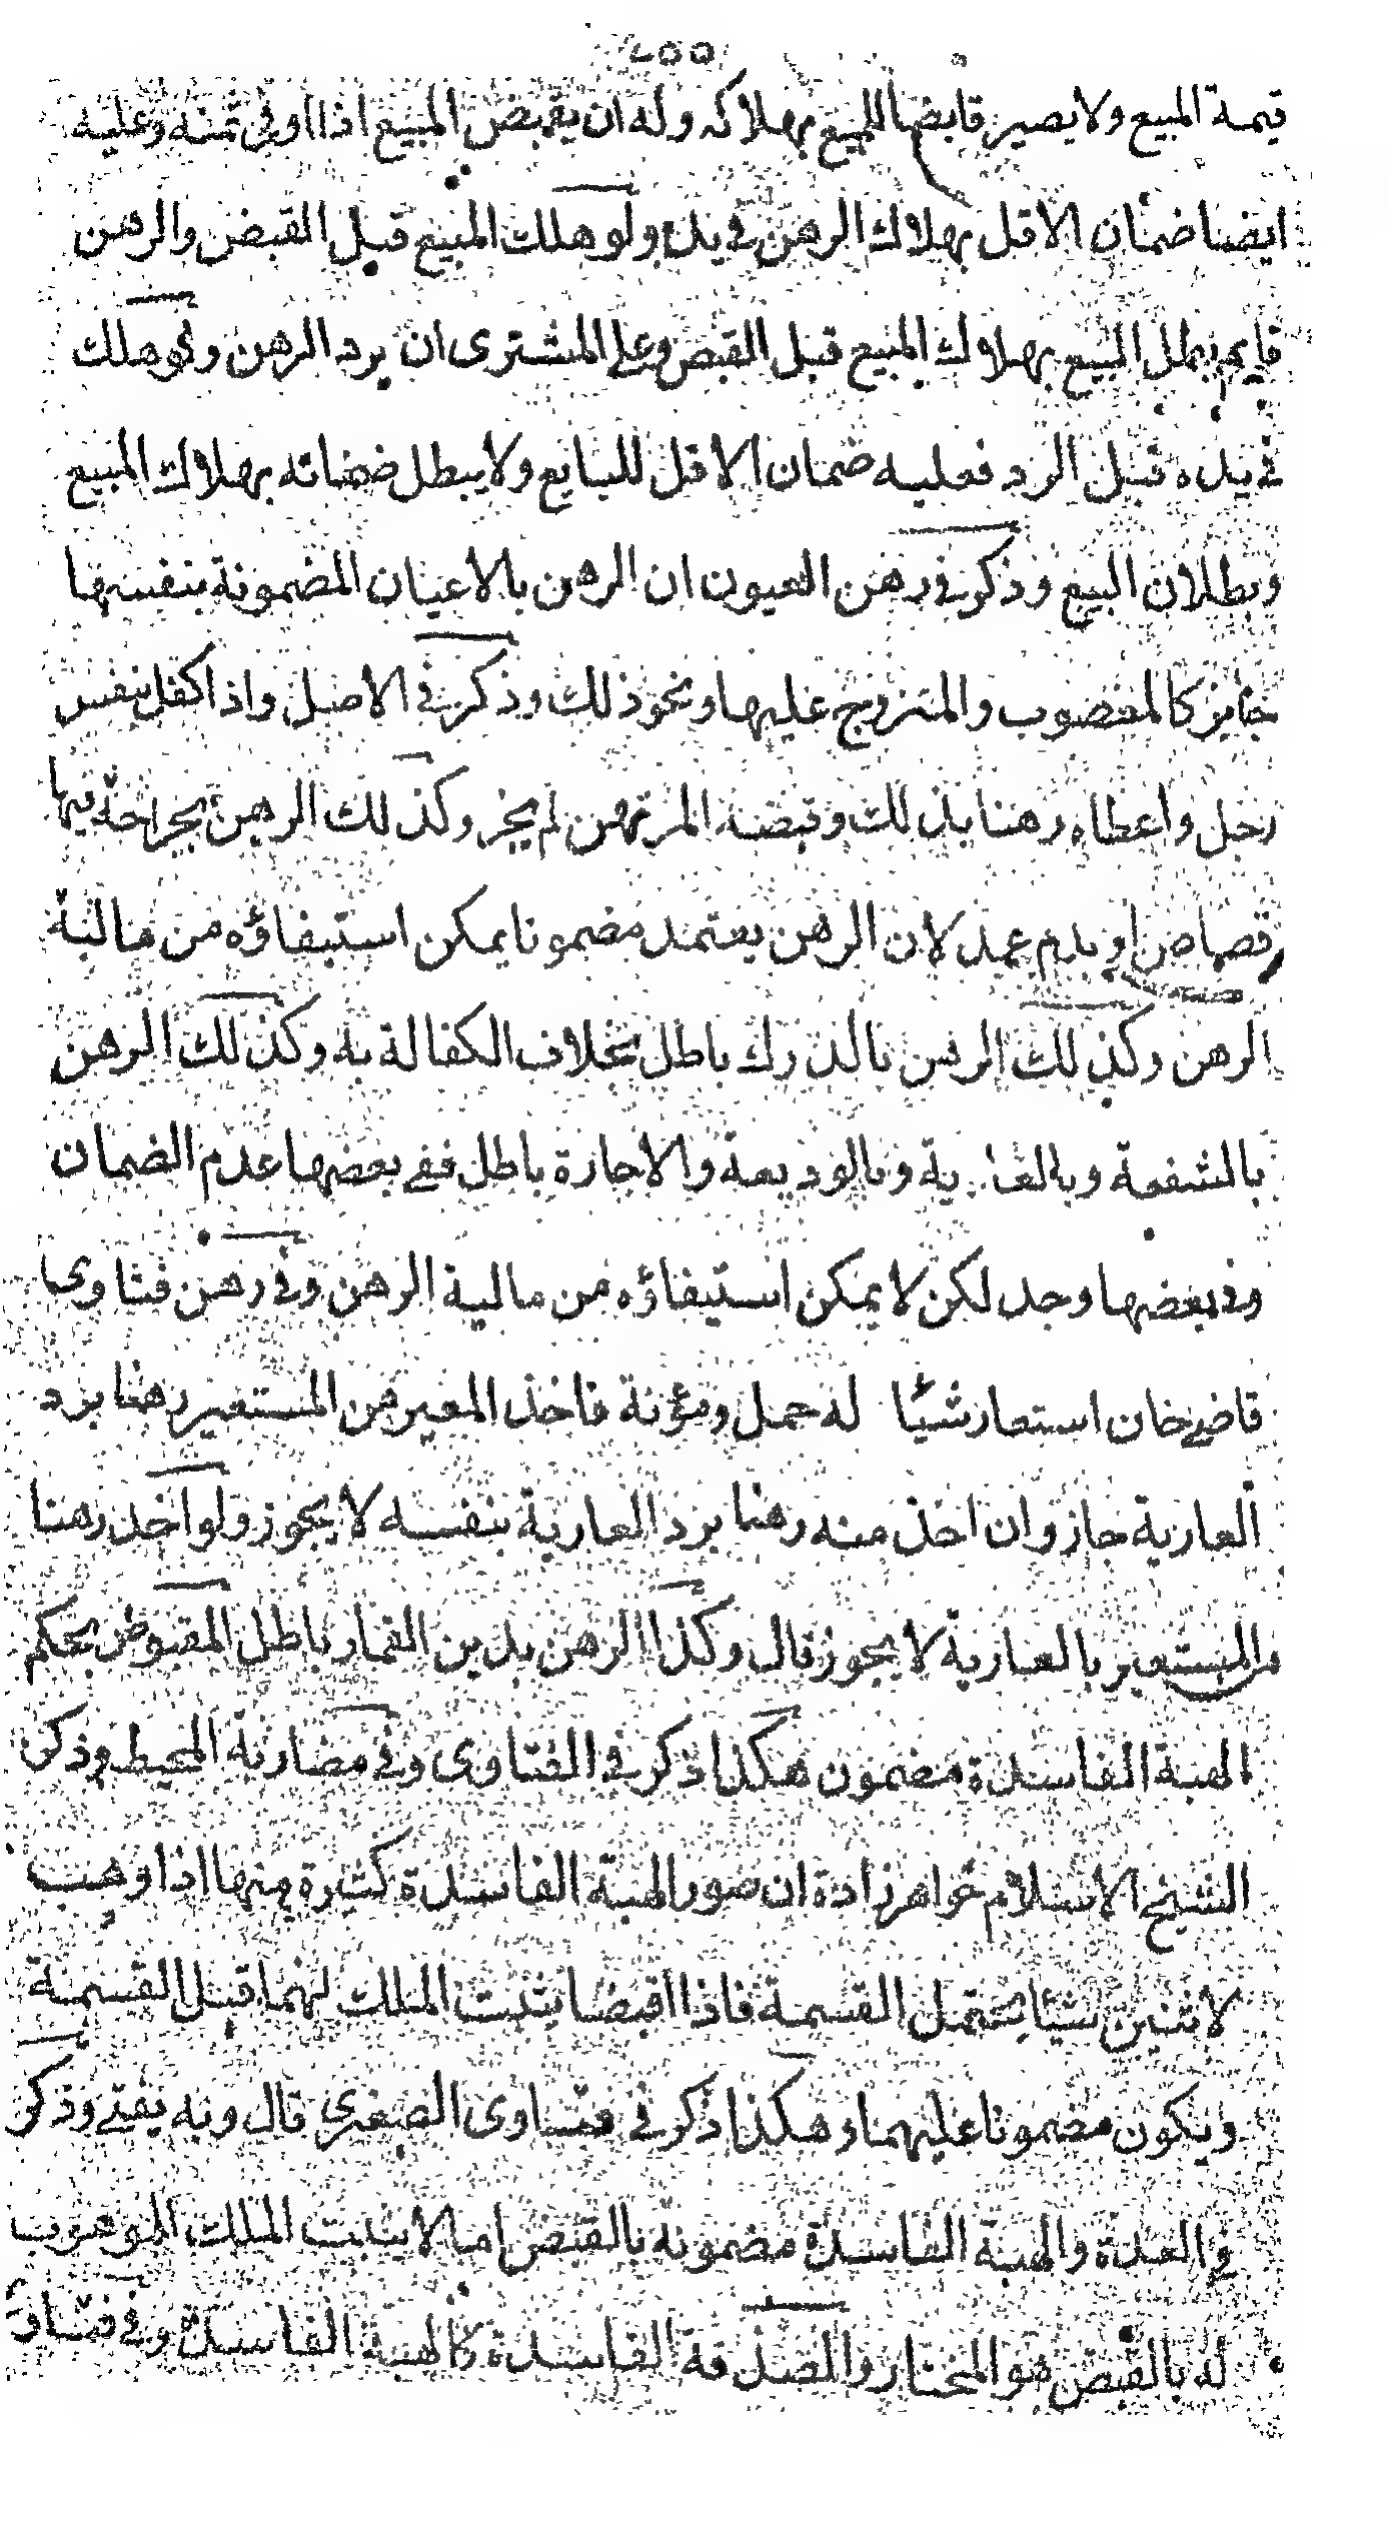 ٢٥٥
قيمة المبيع ولا يصير قابضا للمبيع بهلاكه وله ان يقبض المبيع اذا اوفى ثمنه وعليه
ايضا ضمان الاقل بهلاك الرهن في يده ولو هلك المبيع قبل القبض والرهن
قايم بطل البيع بهلاك المبيع قبل القبض وعلى المشترى ان يرد الرهن ولو هلك
في يده قبل الرد فعليه ضمان الاقل للبايع ولا يبطل ضمانه بهلاك المبيع
وبطلان البيع وذكر في رهن العيون ان الرهن بالاعيان المضمونة بنفسها
جايز كالمغصوب والمتزوج عليها ونحو ذلك وذكر في الاصل واذا كفل بنفس
رجل واعطاه رهنا بذلك وقبضه المرتهن لم يجز وكذلك الرهن بجراحة فيها
قصاص او بدم عمد لان الرهن يعتمد مضمونا يمكن استيفاؤه من مالية
الرهن وكذلك الرهن بالدرك باطل بخلاف الكفالة به وكذلك الرهن
بالشفعة وبالعارية وبالوديعة والاجارة باطل ففي بعضها عدم الضمان
وفي بعضها وجد لكن لا يمكن استيفاؤه من مالية الرهن وفي رهن فتاوى
قاضي خان استعار شيئا له حمل ومؤنة فاخذ المعير من المستعير رهنا برد
العارية جاز وان اخذ منه رهنا برد العارية بنفسه لا يجوز ولو اخذ رهنا
من المستعير بالعارية لا يجوز قال وكذا الرهن بدين القمار باطل المقبوض بحكم
الهبة الفاسدة مضمون هكذا ذكر في الفتاوى وفي مضاربة المحيط وذكر
الشيخ الاسلام خواهر زاده ان صور الهبة الفاسدة كثيرة منها اذا وهب
لاثنين شيئا يحتمل القسمة فاذا اقبضا يثبت الملك لهما قبل القسمة
ويكون مضمونا عليهما وهكذا ذكر في فتاوى الصغرى قال وبه يفتى وذكر
في العدة والهبة الفاسدة مضمونه بالقبض اما لا يثبت الملك الموهوب
له بالقبض هو المختار والصدقة الفاسدة كالهبة الفاسدة وفي فتاوى